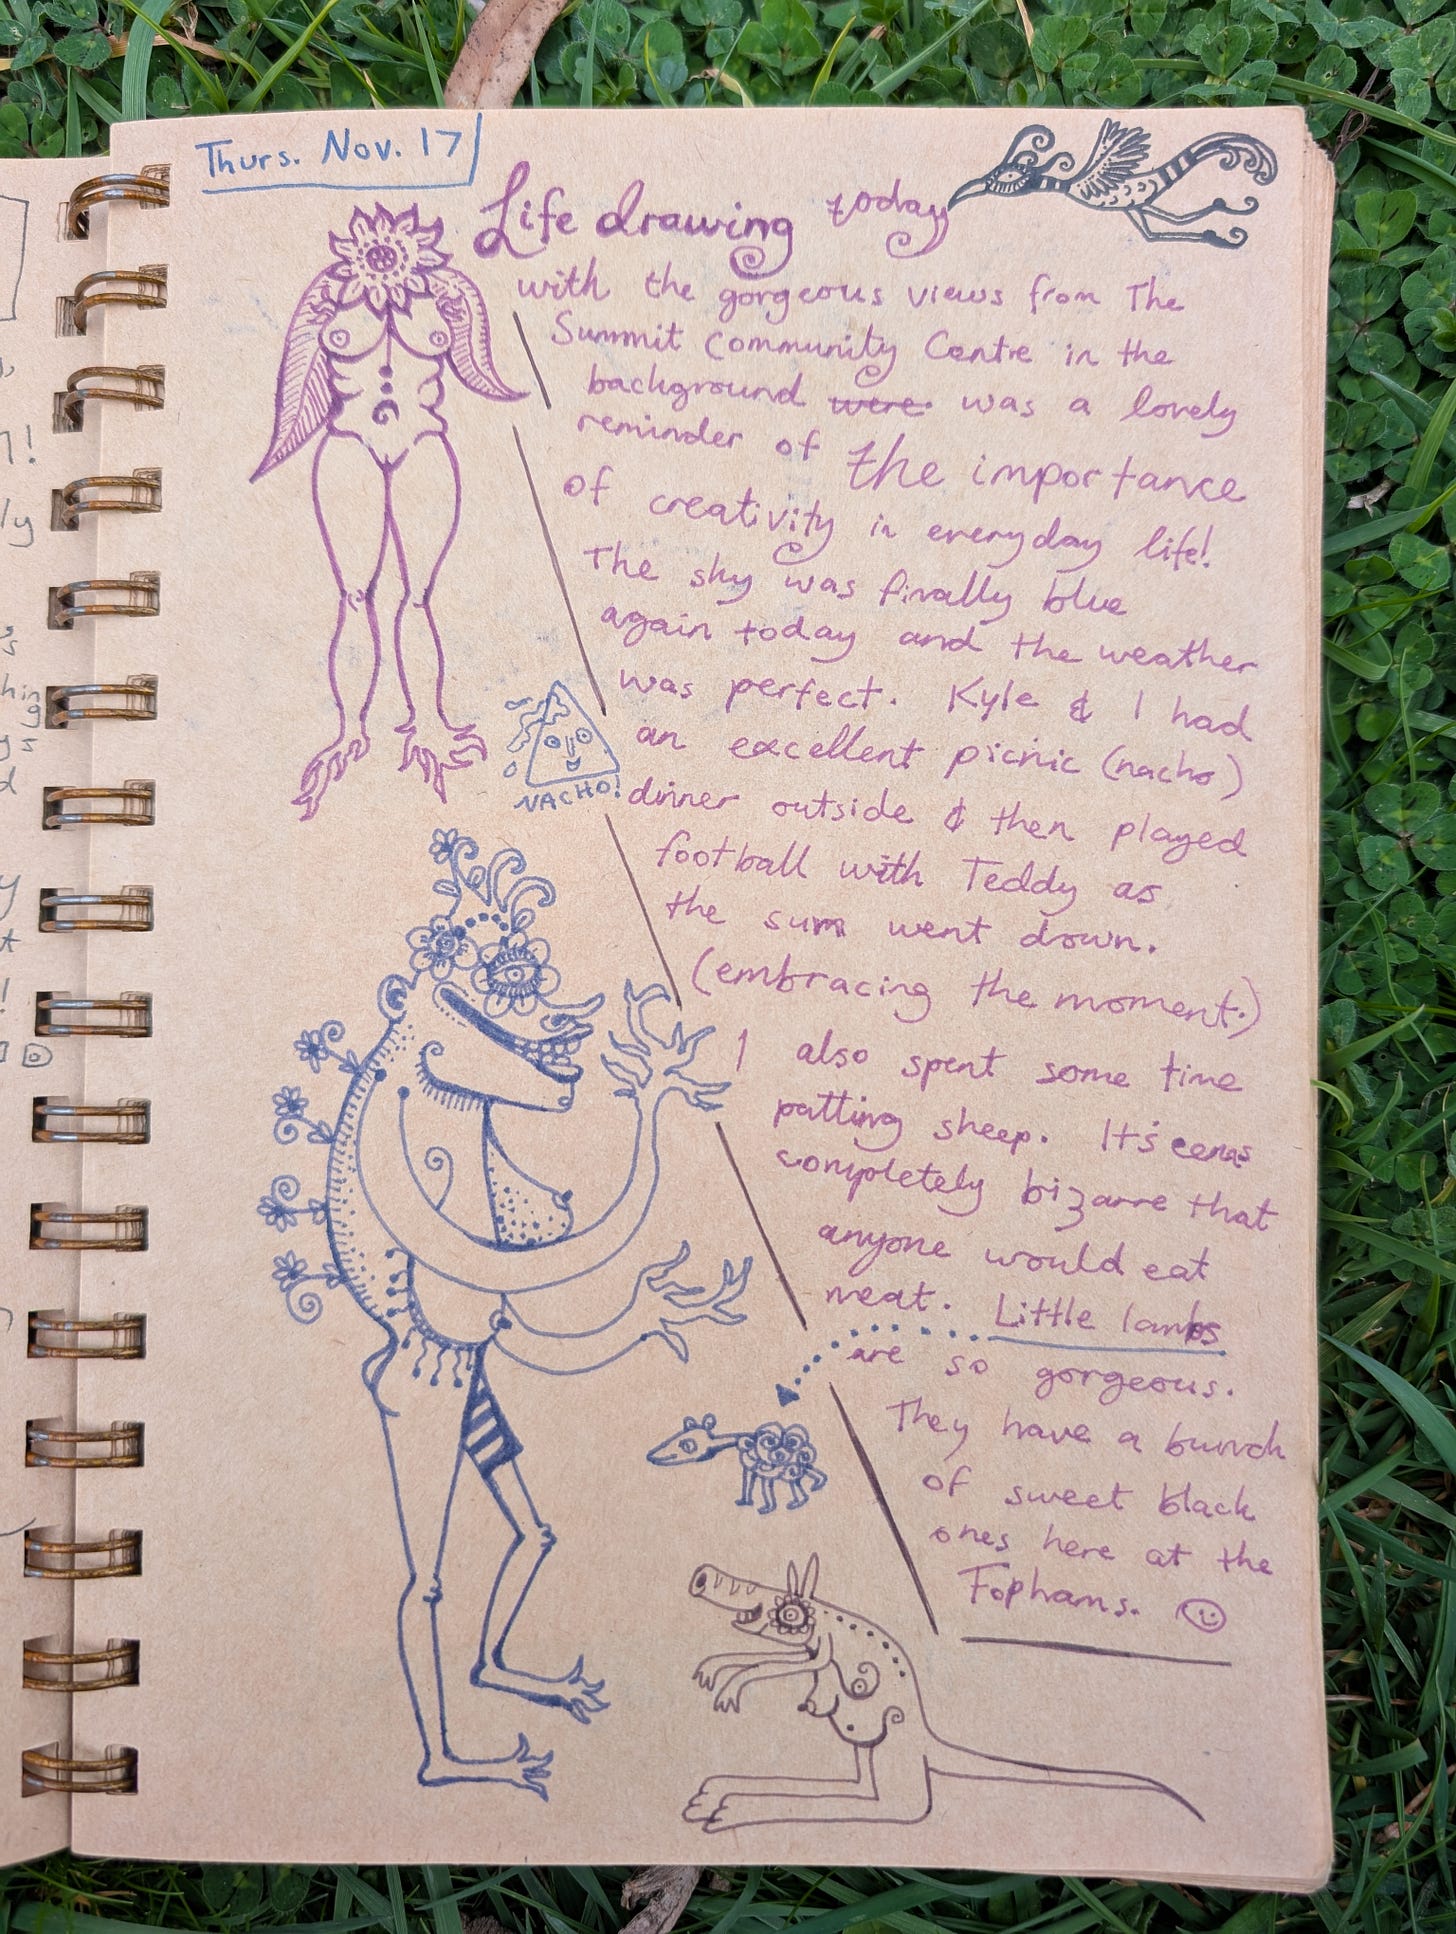 Thurs. Nov. 17
Life drawing today
with the gorgeous views from The
Summit Community Centre in the
background were was a lovely
reminder of the importance
of creativity in everyday life!
The sky was finally blue
again today and the weather
was perfect. Kyle & I had
an excellent picnic (nacho)
NACHO!
dinner outside & then played
football with Teddy as
the sun went down.
(embracing the moment.)
I also spent some time
patting sheep. It's
completely bizarre that
anyone would eat
meat. Little lambs
are so gorgeous.
They have a bunch
of sweet black
ones here at the
Fophams.
n!
ly
s
hin
g
ys
d
y
t
!